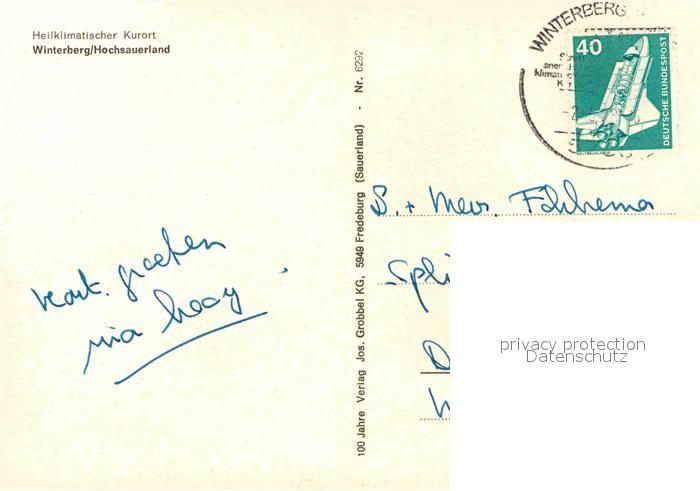 Heilklimatischer Kurort
Winterberg/Hochsauerland
100 Jahre Verlag Jos. Grobbel KG, 5949 Fredeburg (Sauerland) - Nr. 6292
WINTERBERG
40
DEUTSCHE BUNDESPOST
S. + Mevr. Fokkema
Spli
D
W
groeten
privacy protection
Datenschutz